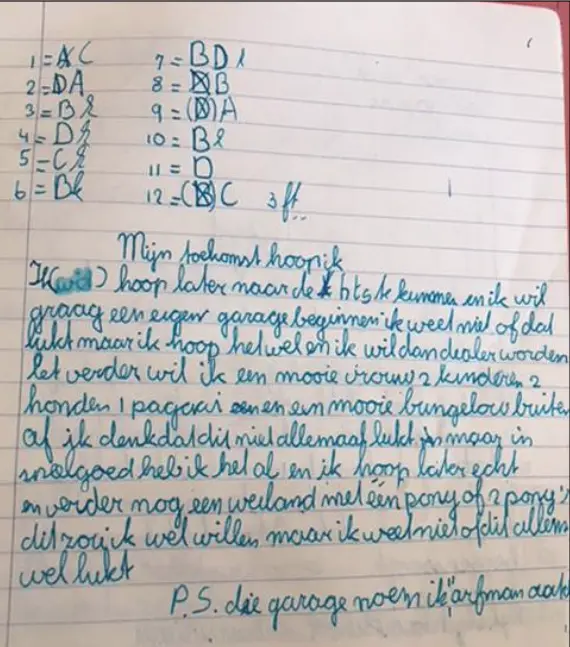 1 = C
2 = DA
3 = B
4 = D
5 = C
6 = B
7 = BD
8 = B
9 = (D) A
10 = B
11 = D
12 = C 3 ft
Mijn toekomst hoop ik
Ik (wil) hoop later naar de hts te kunnen en ik wil
graag een eigen garage beginnen ik weet niet of dat
lukt maar ik hoop het wel en ik wil dan dealer worden
verder wil ik een mooie vrouw 2 kinderen 2
honden 1 en een mooie bungelow buiten
af ik denk dat dit niet allemaal lukt maar in
heb ik het al en ik hoop later echt
en verder nog een weiland met één pony of 2 pony's
dit zou ik wel willen maar ik weet niet of dit allem
wel lukt
P.S. die garage noem ik